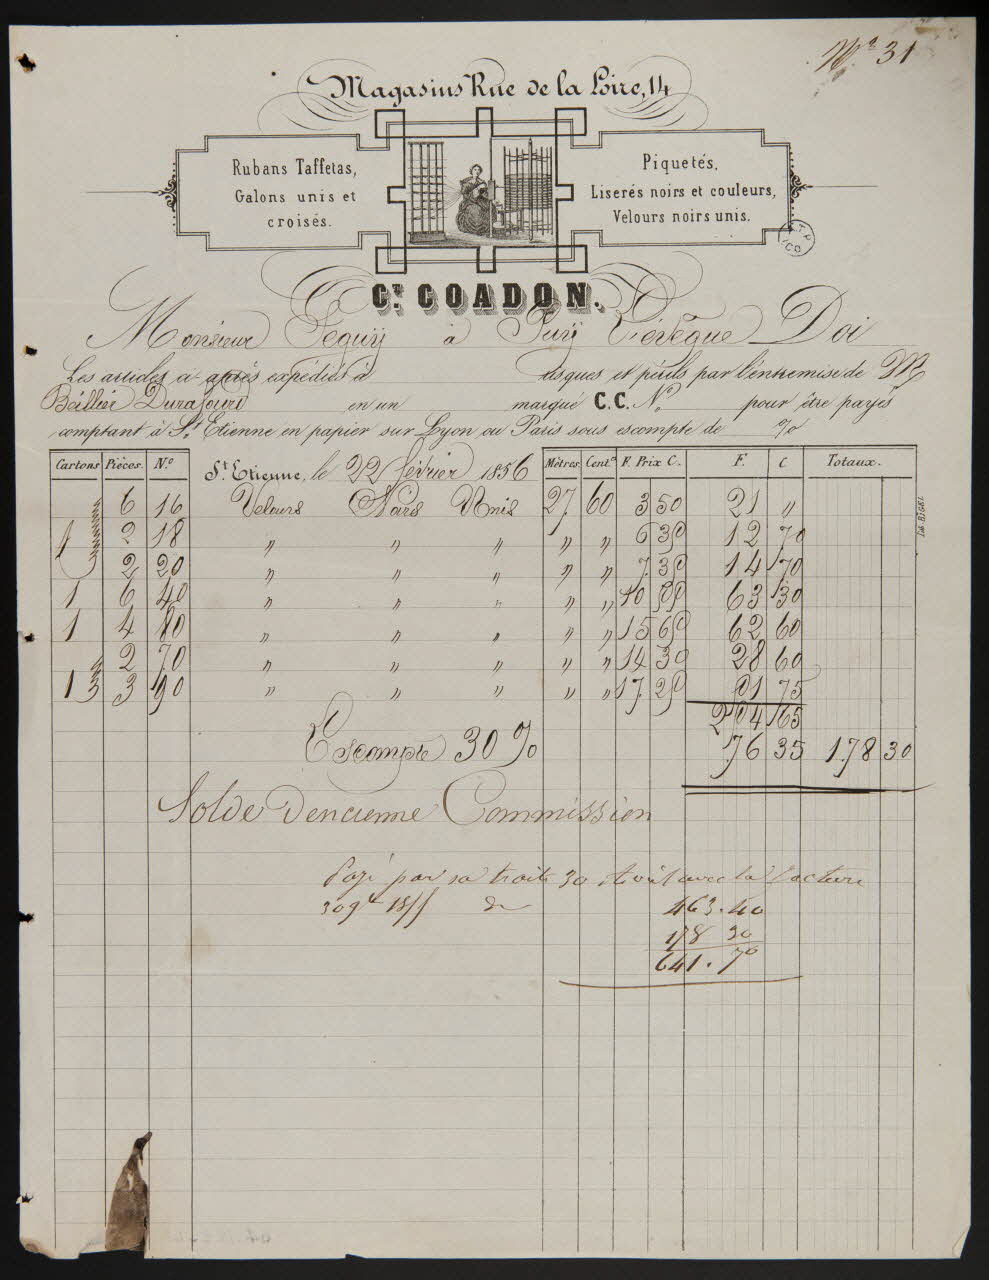 Nº 31
Magasins Rue de la Loire, 14
Rubans Taffetas,
Galons unis et
croisés.
Piquetés,
Liserés noirs et couleurs,
Velours noirs unis.
Ct. COADON.
Monsieur Peguy à Juvy L'évêque Doi
Les articles ci-après expédiés à risques et périls par l'entremise de M
Béllier Durafourd en un marqué C.C. Nº pour être payés
comptant à St. Etienne en papier sur Lyon ou Paris sous escompte de %
Cartons Pièces. N.º St. Etienne, le 22 février 1856 Mètres. Cent.s F. Prix C. F. C Totaux.
6 16 Velours Noirs Unis 27 60 3 50 21 "
1 2 18 " " " " " 6 35 12 70
2 20 " " " " " 7 35 14 70
1 6 40 " " " " " 10 55 63 30
1 4 80 " " " " " 15 65 62 60
2 70 " " " " " 14 30 28 60
1 3 90 " " " " " 17 25 51 75
254 65
Escompte 30 % 76 35 178 30
Solde D'encienne Commission
Payé par sa traite 30 avec la facture
30 9bre 1855 de 463.40
178 30
641.70